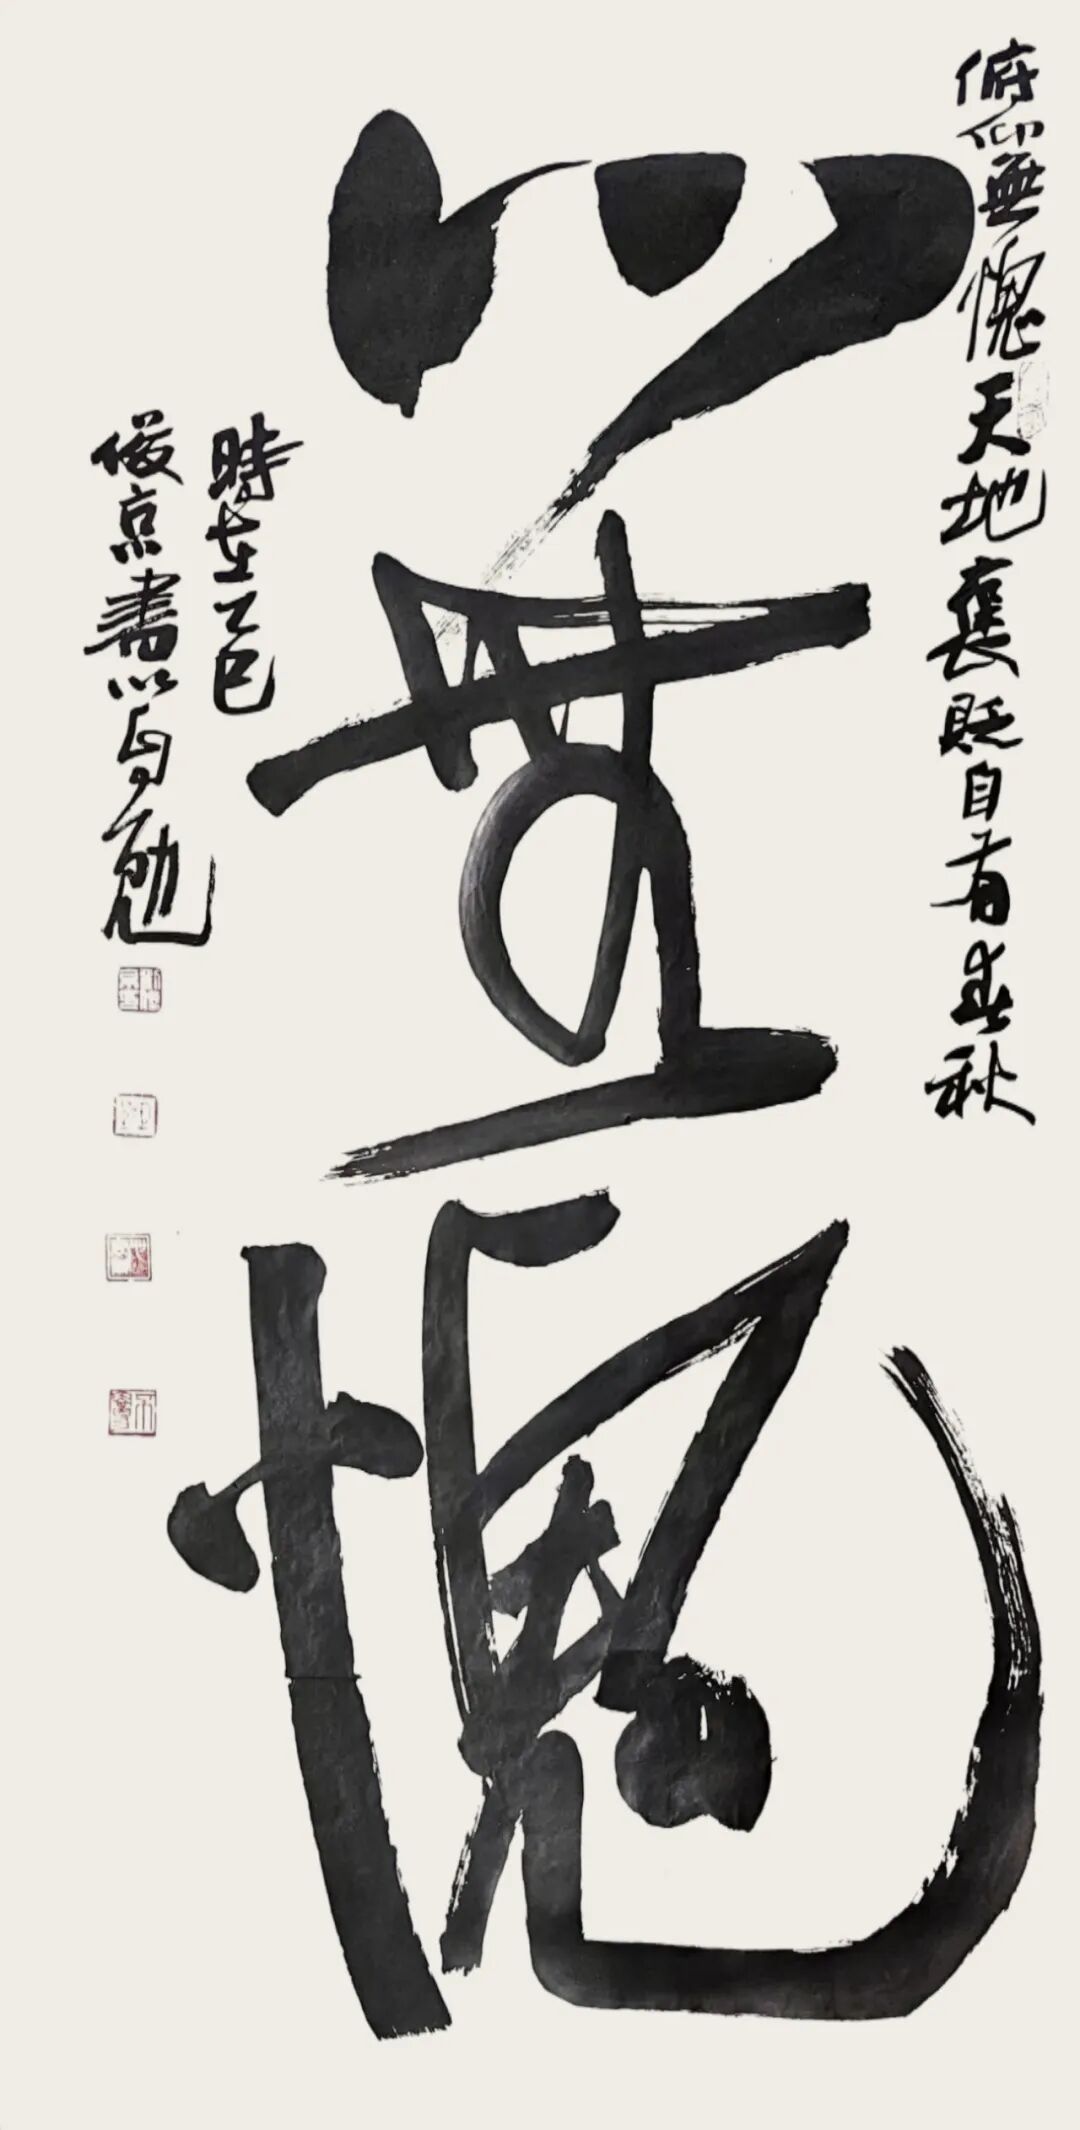 俯仰無愧天地褒貶自有春秋
心無愧
時在乙巳
俊京書以自勉